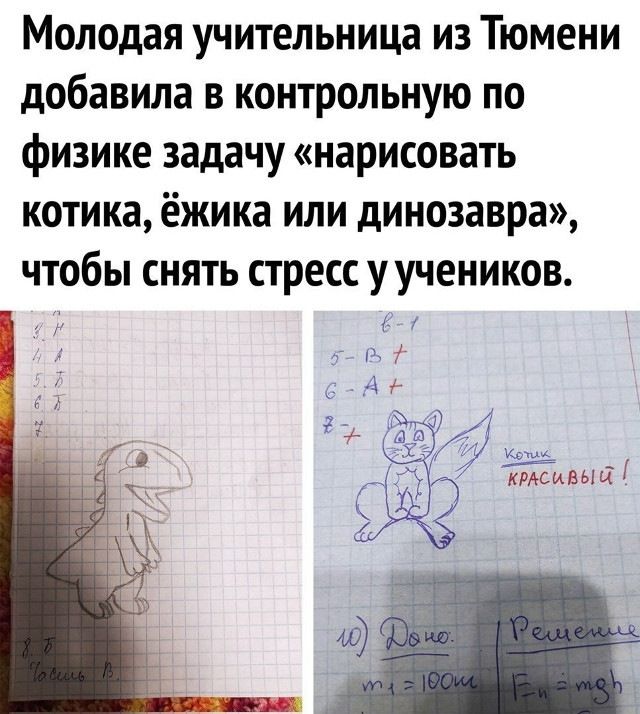 Молодая учительница из Тюмени
добавила в контрольную по
физике задачу «нарисовать
котика, ёжика или динозавра»,
чтобы снять стресс у учеников.
3. Н
4 А
5. Б
6 Б
7
8. Б
Часть В.
в-1
5- В +
6 - А +
7- +
Котик
КРАСИВЫЙ!
10) Дано:
Решение
m₁ = 100
Eп = mgh